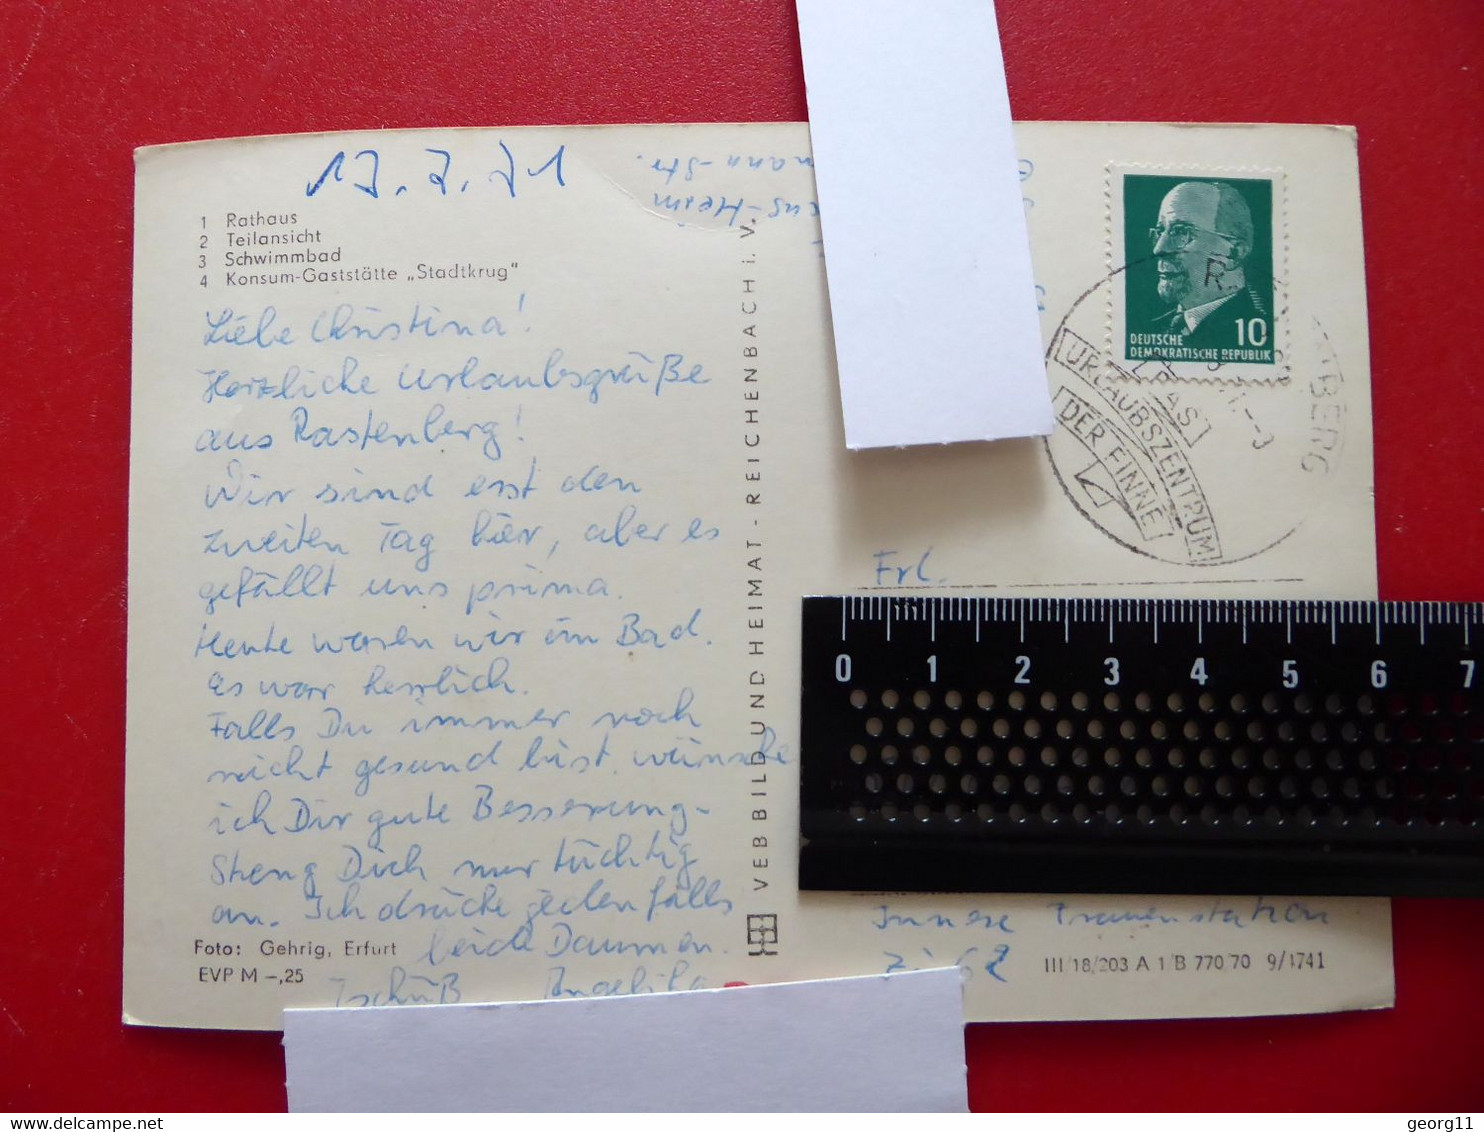 17.7.71
1 Rathaus
2 Teilansicht
3 Schwimmbad
4 Konsum-Gaststätte „Stadtkrug"
Liebe Christina!
Herzliche Urlaubsgrüße
aus Rastenberg!
Wir sind erst den
zweiten Tag hier, aber es
gefällt uns prima.
Heute waren wir im Bad.
Es war herrlich.
Falls Du immer noch
nicht gesund bist, wünsche
ich Dir gute Besserung.
Streng Dich nur tüchtig
an. Ich drücke jedenfalls
beide Daumen.
Tschüß Angelika
Foto: Gehrig, Erfurt
EVP M –,25
VEB BILD UND HEIMAT - REICHENBACH i. V.
mann-Str.
-Heim
10
DEUTSCHE
DEMOKRATISCHE REPUBLIK
URLAUBSZENTRUM
DER FINNE
BERG
Frl.
0 1 2 3 4 5 6 7
Innere Frauenstation
Zi 62
III/18/203 A 1/B 770/70 9/4741
delcampe.net
georg11